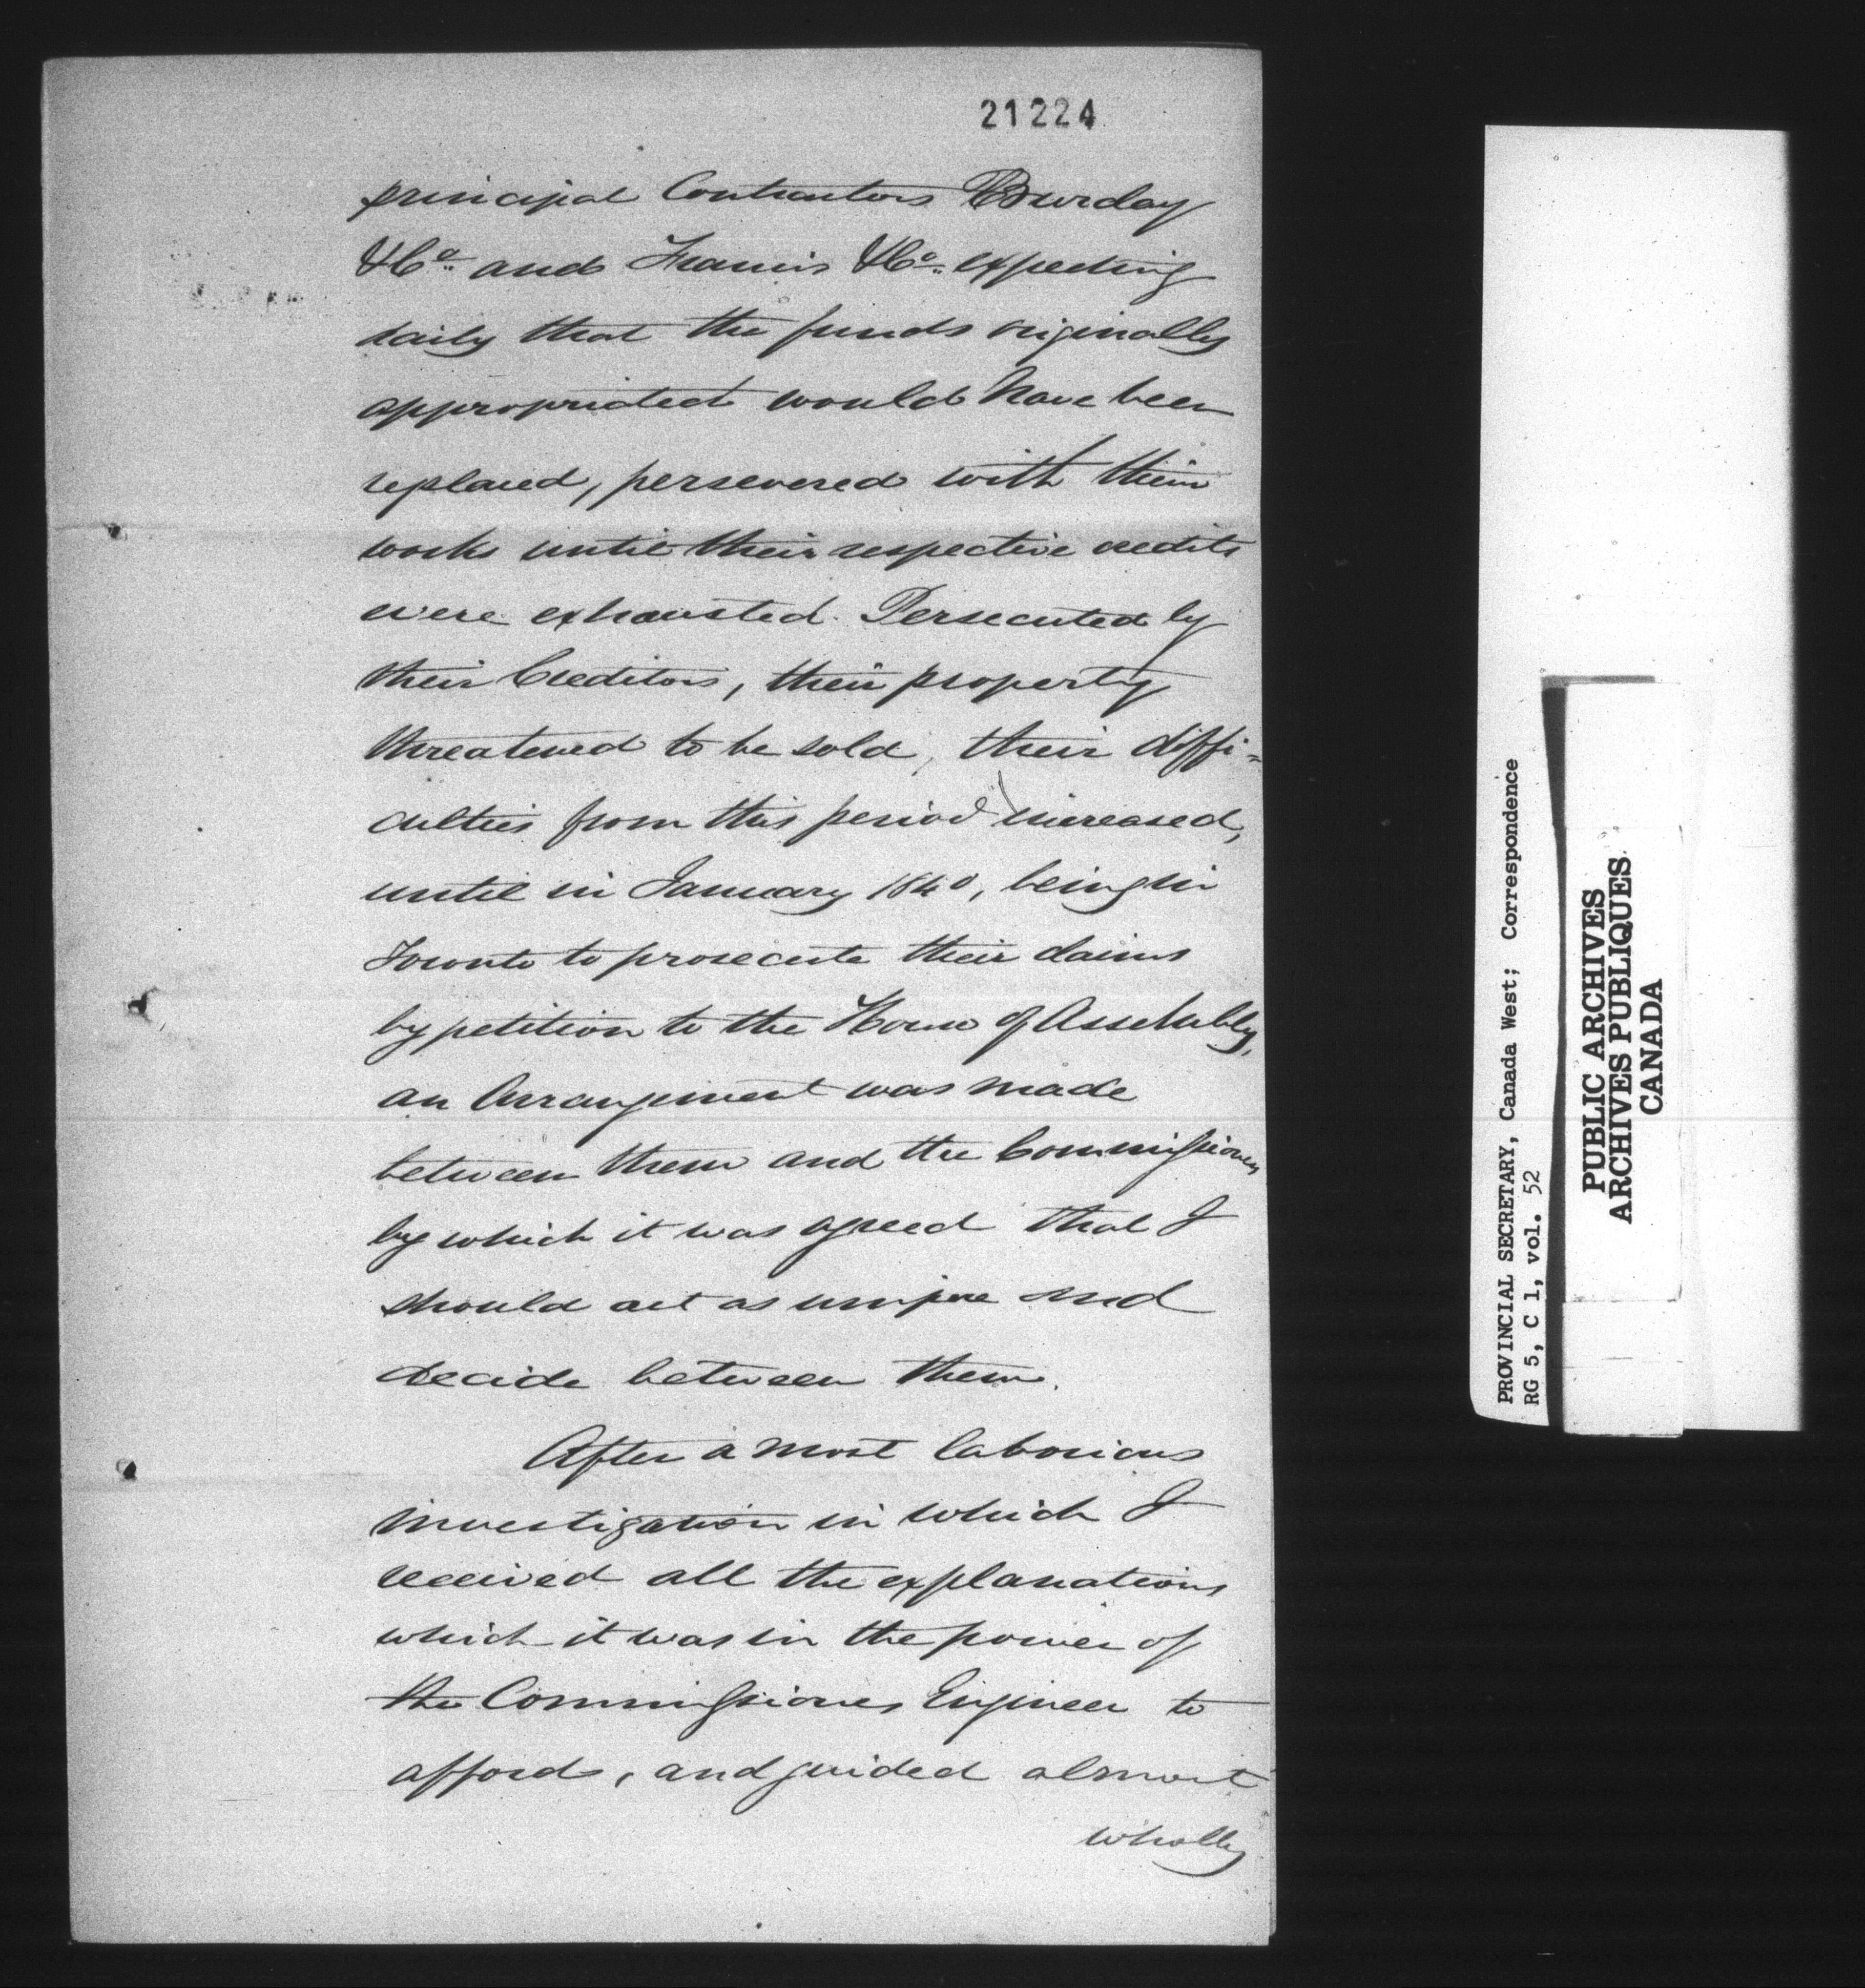 21224
principal Contractors Burday
& Co. and Francis & Co. expecting
daily that the funds originally
appropriated would have been
replaced, persevered with their
works until their respective credits
were exhausted. Persecuted by
their Creditors, their property
threatened to be sold, their diffi-
culties from this period increased,
until in January 1840, being in
Toronto to prosecute their claims
by petition to the House of Assembly,
an Arrangement was made
between them and the Commissioners
by which it was agreed that I
should act as umpire and
decide between them.
After a most laborious
investigation in which I
received all the explanations
which it was in the power of
the Commissioners Engineer to
afford, and guided almost
wholly
PROVINCIAL SECRETARY, Canada West; Correspondence
RG 5, C 1, vol. 52
PUBLIC ARCHIVES
ARCHIVES PUBLIQUES
CANADA